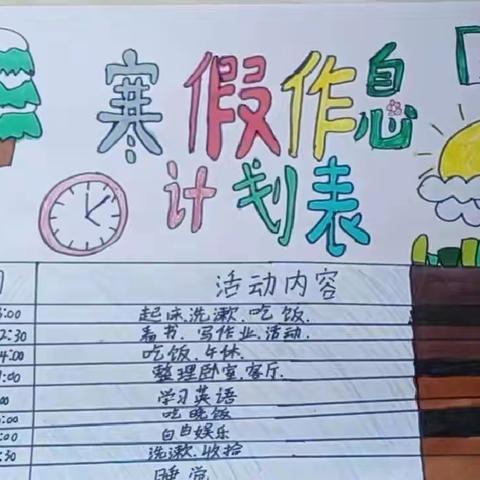 寒假作息
计划表
间 活动内容
:00 起床.洗漱.吃饭.
2:30 看书.写作业.活动.
4:00 吃饭.午休.
:00 整理卧室.客厅.
:00 学习英语
:00 吃晚饭
:00 自由娱乐
:30 洗漱.收拾
睡觉